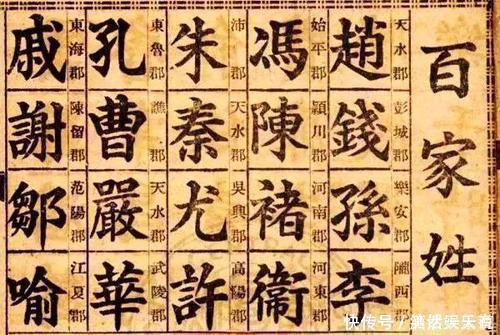 百家姓
天水郡 彭城郡 樂安郡 隴西郡
趙錢孫李
始平郡 潁川郡 河南郡 河東郡
馮陳褚衞
沛郡 天水郡 吳興郡 高陽郡
朱秦尤許
東魯郡 譙郡 天水郡 武陵郡
孔曹嚴華
東海郡 陳留郡 范陽郡 江夏郡
戚謝鄒喻
快传号/